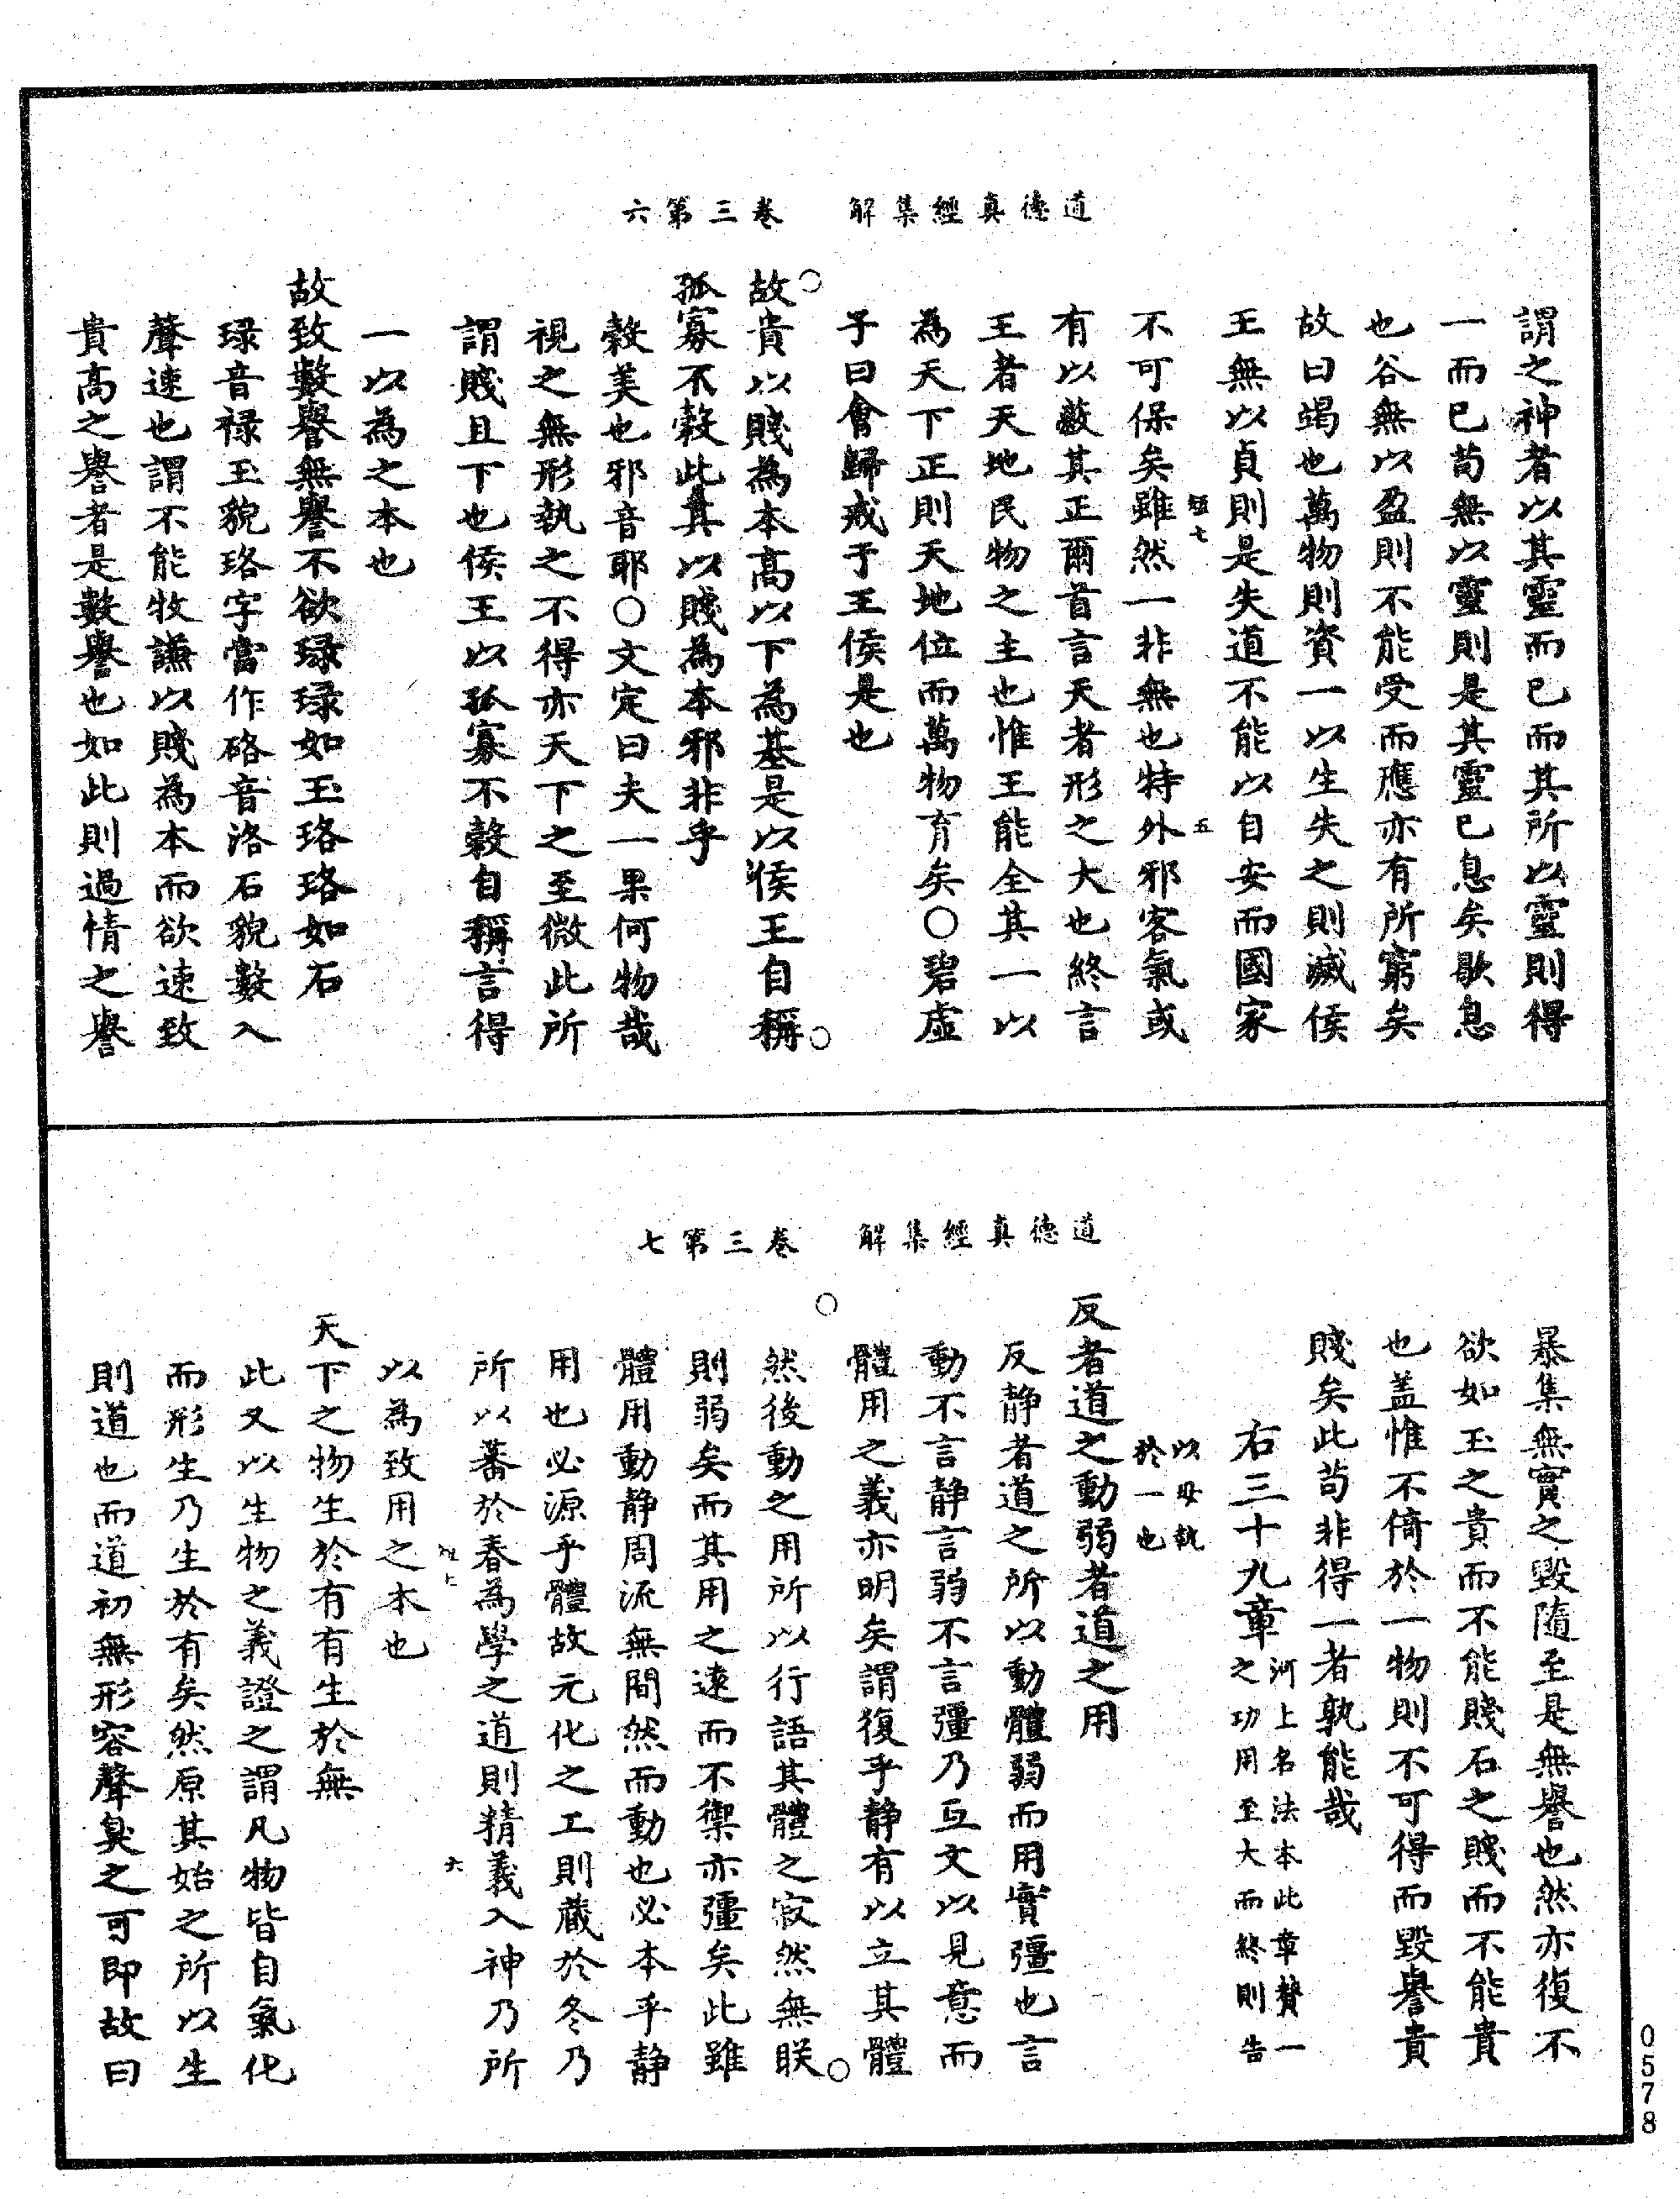 道德真經集解　卷三第六
謂之神者以其靈而已而其所以靈則得
一而已苟無以靈則是其靈已息矣歇息
也谷無以盈則不能受而應亦有所窮矣
故曰竭也萬物則資一以生失之則滅侯
王無以貞則是失道不能以自安而國家
不可保矣雖然一非無也特外邪客氣或
有以蔽其正爾首言天者形之大也終言
王者天地民物之主也惟王能全其一以
為天下正則天地位而萬物育矣○碧虛
子曰會歸戒于王侯是也
故貴以賤為本高以下為基是以侯王自稱
孤寡不穀此其以賤為本邪非乎
穀美也邪音耶○文定曰夫一果何物哉
視之無形執之不得亦天下之至微此所
謂賤且下也侯王以孤寡不穀自稱言得
一以為之本也
故致數譽無譽不欲琭琭如玉珞珞如石
琭音祿玉貌珞字當作硌音洛石貌數入
聲速也謂不能牧謙以賤為本而欲速致
貴高之譽者是數譽也如此則過情之譽
道德真經集解　卷三第七
暴集無實之毀隨至是無譽也然亦復不
欲如玉之貴而不能賤石之賤而不能貴
也蓋惟不倚於一物則不可得而毀譽貴
賤矣此苟非得一者孰能哉
右三十九章河上名法本此章贊一之功用至大而終則告
以毋執於一也
反者道之動弱者道之用
反静者道之所以動體弱而用實彊也言
動不言静言弱不言彊乃互文以見意而
體用之義亦明矣謂復乎静有以立其體
然後動之用所以行語其體之寂然無眹
則弱矣而其用之速而不禦亦彊矣此雖
體用動静周流無間然而動也必本乎静
用也必源乎體故元化之工則藏於冬乃
所以蕃於春為學之道則精義入神乃所
以為致用之本也
天下之物生於有有生於無
此又以生物之義證之謂凡物皆自氣化
而形生乃生於有矣然原其始之所以生
則道也而道初無形容聲臭之可即故曰
0578